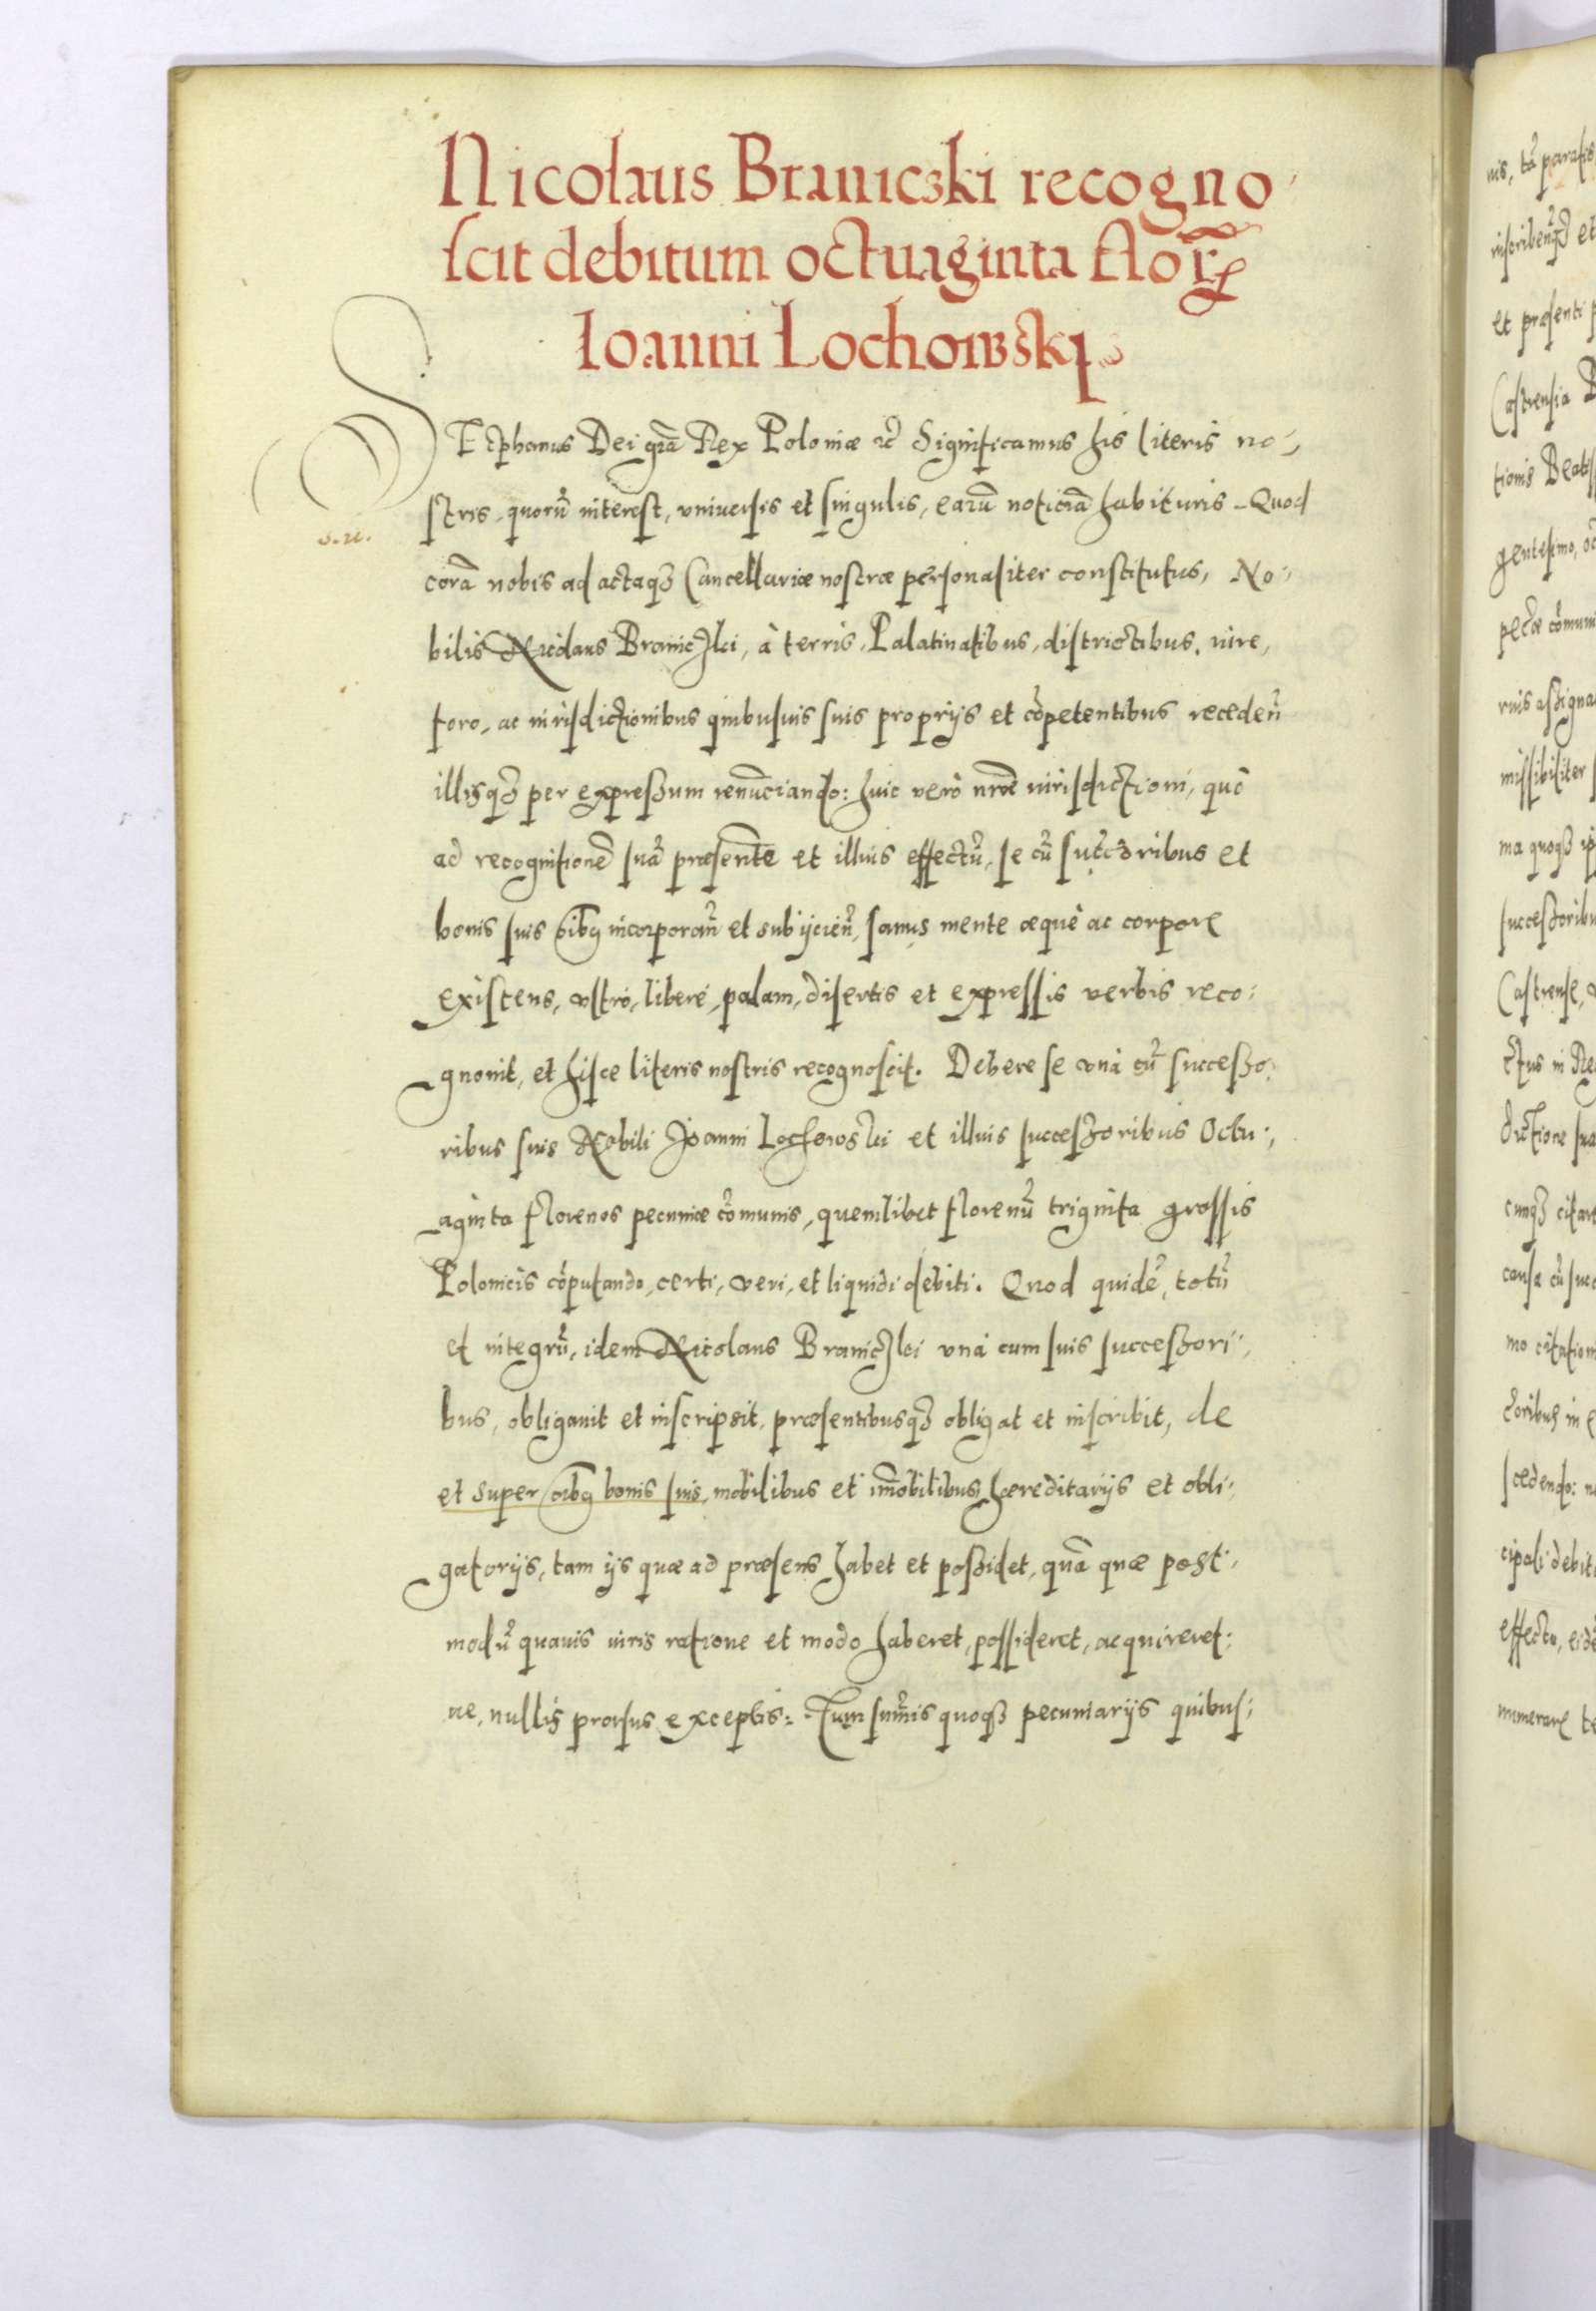 Nicolaus Braniczki recogno
scit debitum octuaginta floꝝ
Ioanni Lochowski
STEphanus Dei grã Rex Poloniæ etc̃ Significamus his literis no-
stris, quorũ interest, vniuersis et singulis, earũ noticiã habituris. Quod
corã nobis ad actaqȝ Cancellariæ nostræ personaliter constitutus, No-
s. u.
bilis Nicolaus Braniczki, à terris, Palatinatibus, districtibus, iure,
foro, ac iurisdictionibus quibusuis suis proprijs et cõpetentibus recedeñ
illisqȝ per expressum renũciando: huic verò nr̃æ iurisdictioni, quò
ad recognitionẽ suã præsentẽ et illius effectũ, se cũ succ̃oribus et
bonis suis oĩbꝰ incorporañ et subijcieñ, sanus mente æquè ac corpore
existens, vltrò, liberè, palam, disertis et expressis verbis reco-
gnouit, et hisce literis nostris recognoscit. Debere se vnà cũ successo-
ribus suis Nobili Joanni Lochowski et illius successoribus Octu-
aginta florenos pecuniæ cõmunis, quemlibet florenũ triginta grossis
Polonicis cõputando, certi, veri, et liquidi debiti. Quod quidẽ, totũ
et integrũ, idem Nicolaus Braniczki vnà cum suis successori-
bus, obligauit et inscripsit, præsentibusqȝ obligat et inscribit, de
et super oĩbꝰ bonis suis, mobilibus et im̃obilibus hæreditarijs et obli-
gatorijs, tam ijs quæ ad præsens habet et possidet, quã quæ post-
modũ quauis iuris ratione et modo haberet, possideret, acquireret-
ue, nullis prorsus exceptis: Tum sum̃is quoqȝ pecuniarijs quibus-
et præsenti
Castrensia
gentesimo,
missibiliter
ma quoqȝ
Castrense,
dictione
cunqȝ
scedendo:
cipali debit
effectu,